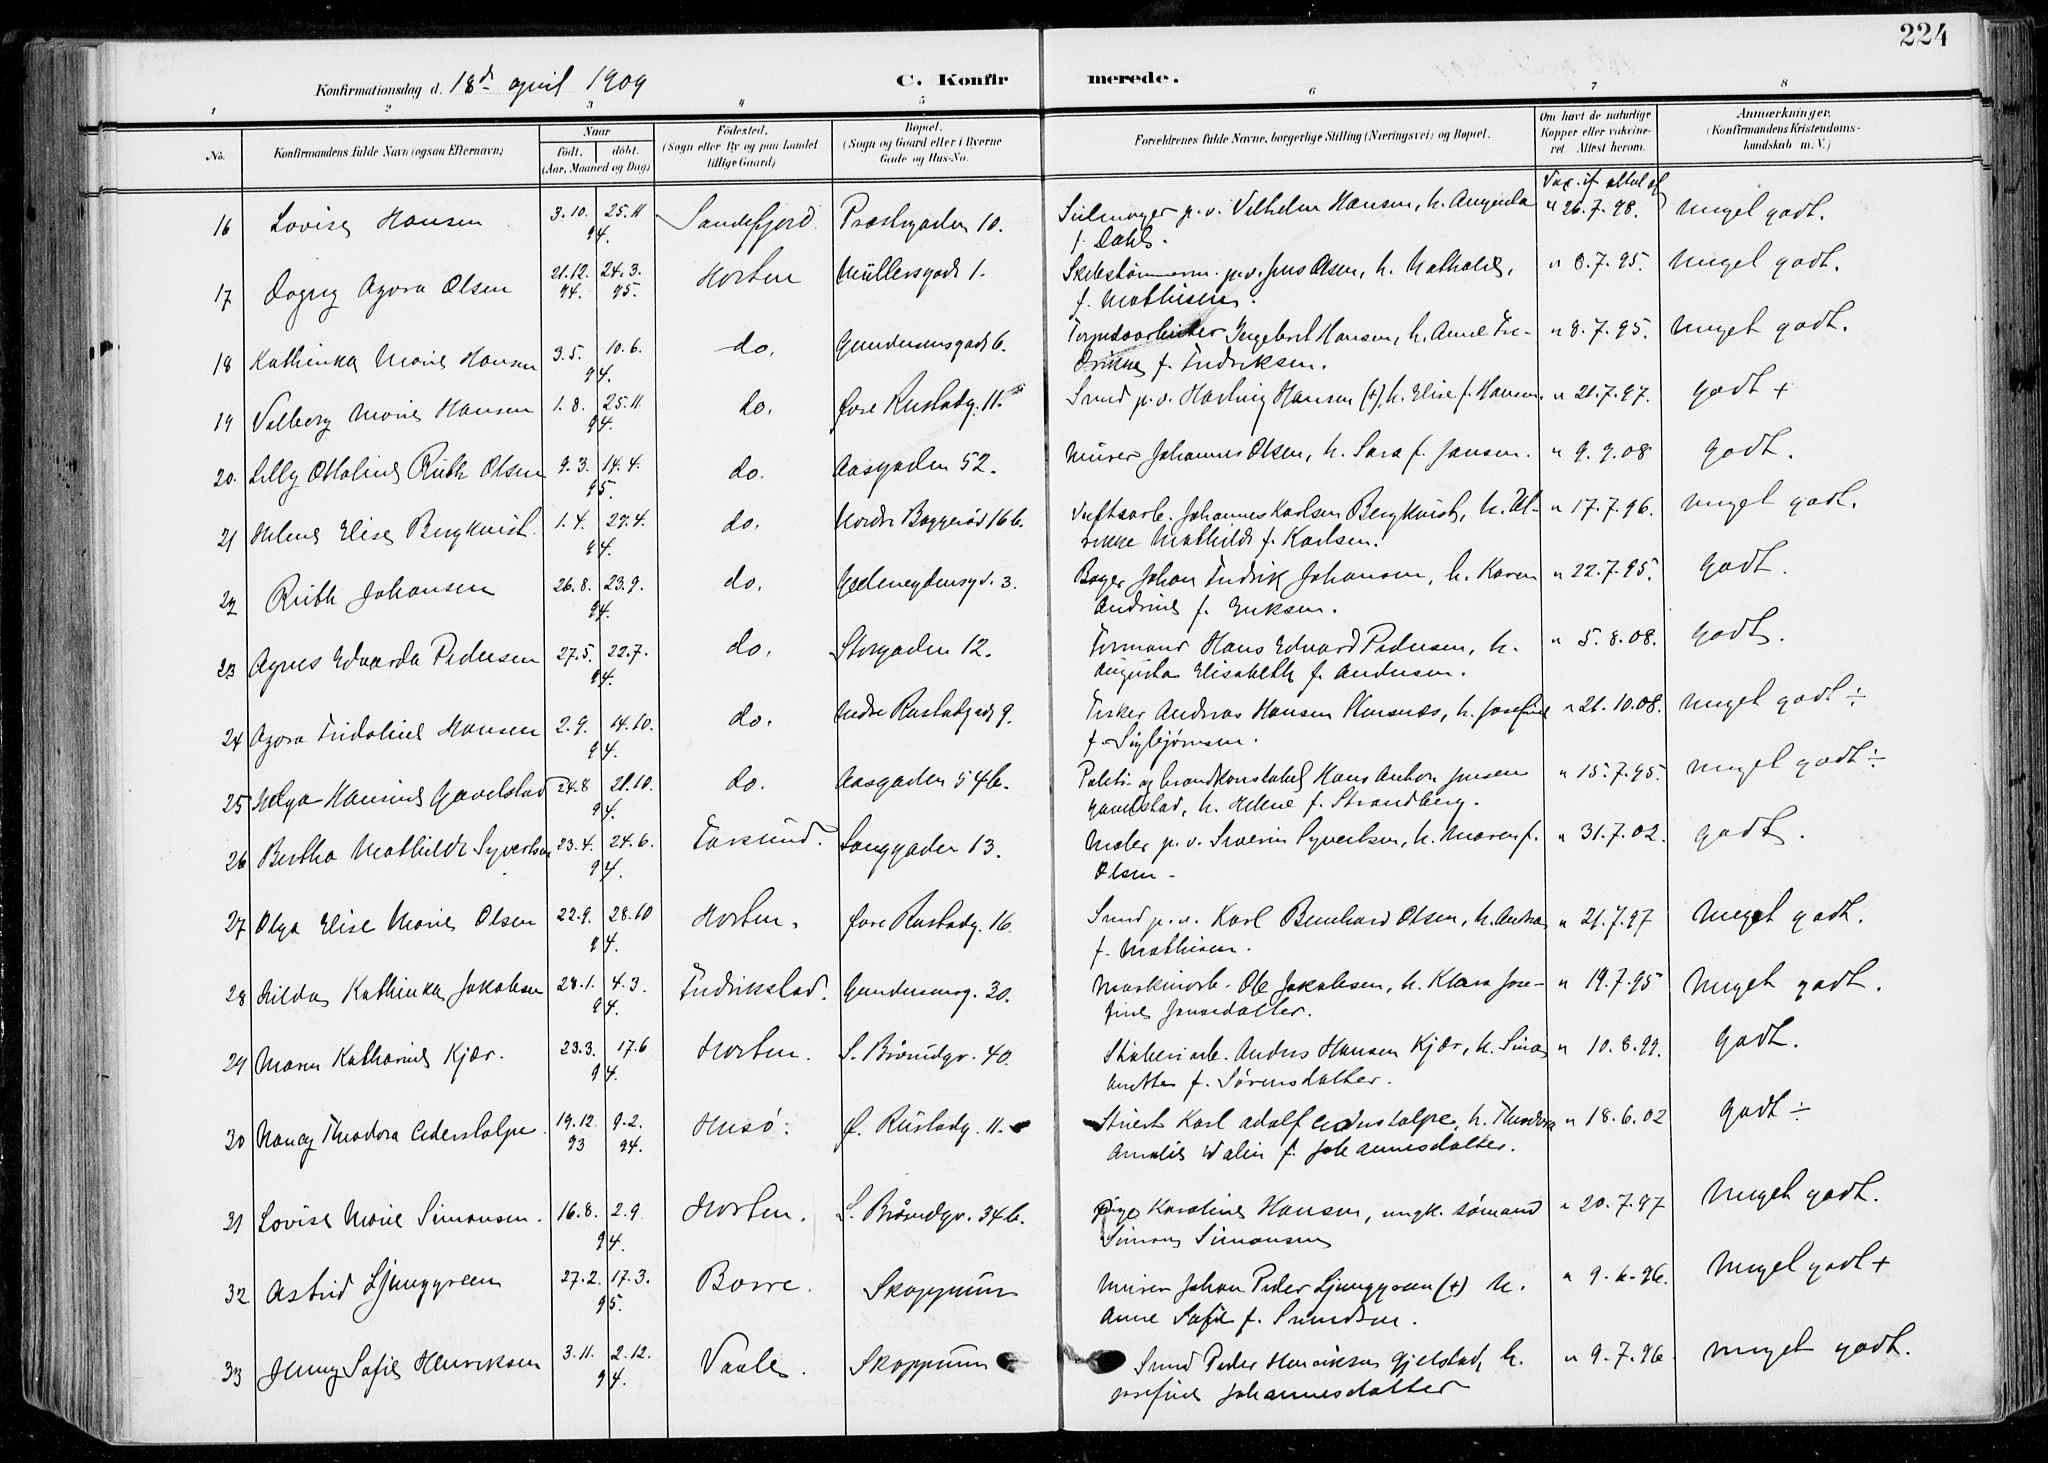 224
Konfirmationsdag d. 18de april 1909
C. Konfir merede.
1 2 3 4 5 6 7 8
No. Konfirmandens fulde Navn (ogsaa Efternavn) Naar født. døbt. (Aar, Maaned og Dag) Fødested. (Sogn eller By og paa Landet tillige Gaard) Bopæl. (Sogn og Gaard eller i Byerne Gade og Hus-No. Forældrenes fulde Navne, borgerlige Stilling (Næringsvei) og Bopæl. Om havt de naturlige Kopper eller vakcineret. Attest herom. Anmærkninger. (Konfirmandens Kristendomskundskab m. V.)
Vac. if. attest af
16 Lovise Hansen 3.10. 25.11 94. Sandefjord. Præstegaden 10. Seilmager p.v. Vilhelm Hansen, h. Augusta f. Dahl. " 26.7.98. Meget godt.
17 Dagny Agora Olsen 21.12. 94. 24.3. 95. Horten Müllersgade 1. Skibstømmerm. p.v. Jens Olsen, h. Mathilde, f. Mathisen. " 8.7.95. Meget godt.
18 Kathinka Marie Hansen 3.5. 10.6. 94. do. Gundersensgade 6. Torpedoarbeider Ingebret Hansen, h. Anne Fredrikke f. Fredriksen. " 8.7.95. Meget godt.
19 Valborg Marie Hansen 1.8. 25.11. 94. do. Øvre Rustadg. 11. Smed p.v. Hansen (+), h. Elise f. Hansen. " 21.7.97. godt +
20. Lilly Othaline Ruth Olsen 9.3. 14.4. 95. do. Aasgaden 52. Murer Johannes Olsen, h. Sara f. Jansen. " 9.9.08 godt.
21 Helene Elise Bergkvist. 1.4. 29.4. 94. do. Nordre Baggerød 16 b. Verftsarb. Johannes Karlsen Bergkvist, h. Ulrikke Mathilde f. Karlsen. " 17.7.96. Meget godt.
22 Ruth Johansen 26.8. 23.9. 94. do. 3. Bager Johan Fredrik Johansen, h. Karen Andrine f. Eriksen. " 22.7.95. godt.
23 Agnes Edvarda Pedersen 27.5. 22.7. 94. do. Storgaden 12. Formand Hans Edvard Pedersen, h. Augusta Elisabeth f. Andersen. " 5.8.08. godt.
24 Agora Fridoline Hansen 2.9. 14.10. 94. do. Nedre Rustadgade 9. Fisker Andreas Hansen h. Josefine f. Sigbjørnsen. " 21.10.08. Meget godt ÷
25 Helga Hansine Gavelstad 24.8 21.10. 94. do. Aasgaden 54 b. Politi- og brandkonstabel Hans Anton Jensen Gavelstad, h. Helene f. Strandberg. " 15.7.95. Meget godt ÷
26 Bertha Mathilde Syvertsen 23.4. 24.6. 94. Farsund. Langgaden 13. Maler p.v. Severin Syvertsen, h. Maren f. Olsen - " 31.7.02. godt.
27 Olga Elise Marie Olsen 22.9. 28.10 94. Horten. Øvre Rustadg. 16. Smed p.v. Karl Bernhard Olsen, h. Andrea f. Mathisen. " 21.7.97 Meget godt.
28 Hilda Kathinka Jakobsen 28.1. 4.3. 94. Fredrikstad. Gundersensg. 30. Maskinarb. Ole Jakobsen, h. Klara Josefine Jonasdatter. " 19.7.95 Meget godt.
29 Maren Katharine Kjær. 23.3. 17.6 94. Horten. S. Brårudgv. 40. arb. Anders Hansen Kjær, h. Sina Anette f. Sørensdatter. " 10.8.99. godt.
30 Nancy Theodora Cederstolpe. 19.12. 93 9.2. 94. Husø. Ø. Rustadg. 11. Stuert Karl Adolf Cederstolpe, h. Theodora Amalie Walin f. Johannesdatter. " 18.6.02 godt ÷
31 Lovise Marie Simonsen. 16.8. 2.9. 94. Horten. S. Brårudgv. 34 b. pige Karoline Hansen, ungk. sømand Simon Simonsen " 20.7.97 Meget godt.
32 Astrid Ljunggreen 27.2. 17.3. 95. Borre. Skoppum Murer Johan Peder Ljunggreen (+) h. Anne Sofie f. " 9.6.96. Meget godt +
33 Jenny Sofie Henriksen 3.11. 2.12. 94. Vaale. Skoppum Smed Peder Henriksen Gjelstad, h. Josefine Johannesdatter " 9.7.96. Meget godt.